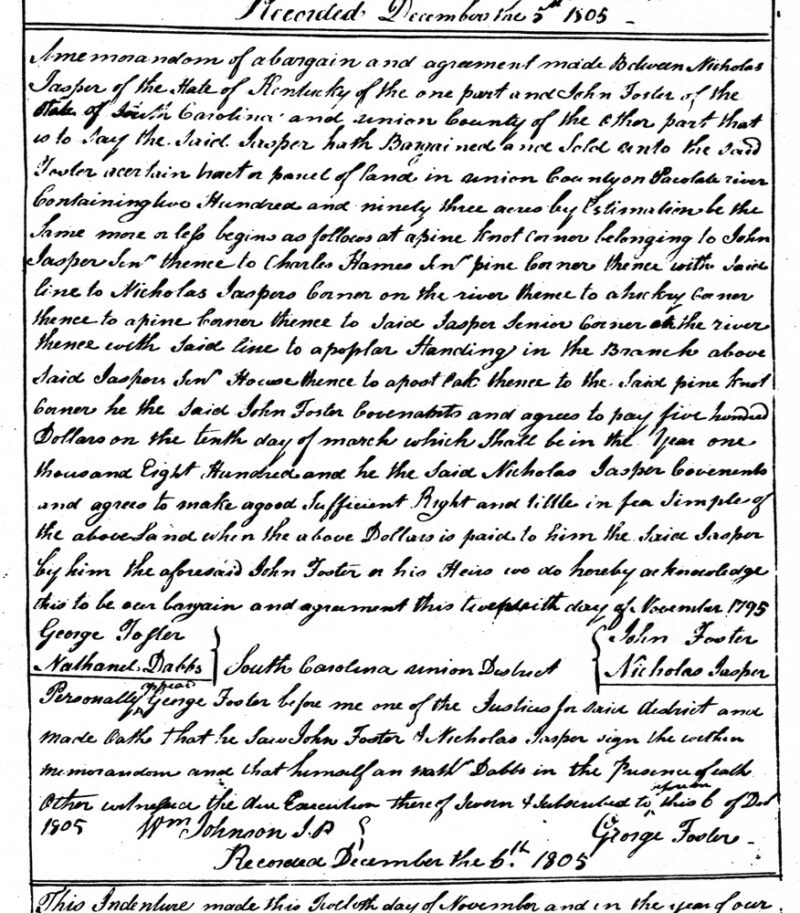 Recorded December the 5th 1805
A memorandom of a bargain and agreement made Between Nicholas
Jasper of the State of Kentucky of the one part and John Foster of the
State of South Carolina and union County of the other part that
is to Say the Said Jasper hath Bargained and Sold unto the said
Foster a certain tract or parcel of land in union County on Pacolate river
Containing two Hundred and ninety three acres by Estimation be the
Same more or less begins as follows at a pine knot Corner belonging to John
Jasper Senr thence to Charles Hames Senr pine Corner thence with Said
line to Nicholas Jaspers Corner on the river thence to a hickry Corner
thence to a pine Corner thence to Said Jasper Senior Corner on the river
thence with Said line to a poplar Standing in the Branch above
Said Jaspers Senr House thence to a post oak thence to the Said pine knot
Corner he the Said John Foster Covenants and agrees to pay five hundred
Dollars on the tenth day of march which Shall be in the Year one
thousand Eight Hundred and he the Said Nicholas Jasper Covenents
and agrees to make a good Sufficient Right and tittle in fea Simple of
the above Land when the above Dollars is paid to him the Said Jasper
by him the aforesaid John Foster or his Heirs we do hereby acknowledge
this to be our bargain and agreement this day of November 1795
George Foster John Foster
Nathanel Dabbs South Carolina union District Nicholas Jasper
Personally appeard George Foster before me one of the Justices for said district and
made Oath that he Saw John Foster & Nicholas Jasper sign the within
memorandom and that himself an nathl Dabbs in the Presence of each
Other witnessed the due Execution there of Sworn & Subscribed to this 6 of Decr
1805 Wm Johnson J.P George Foster
Recorded December the 6th 1805
This Indenture made this Twelfth day of November and in the year of our